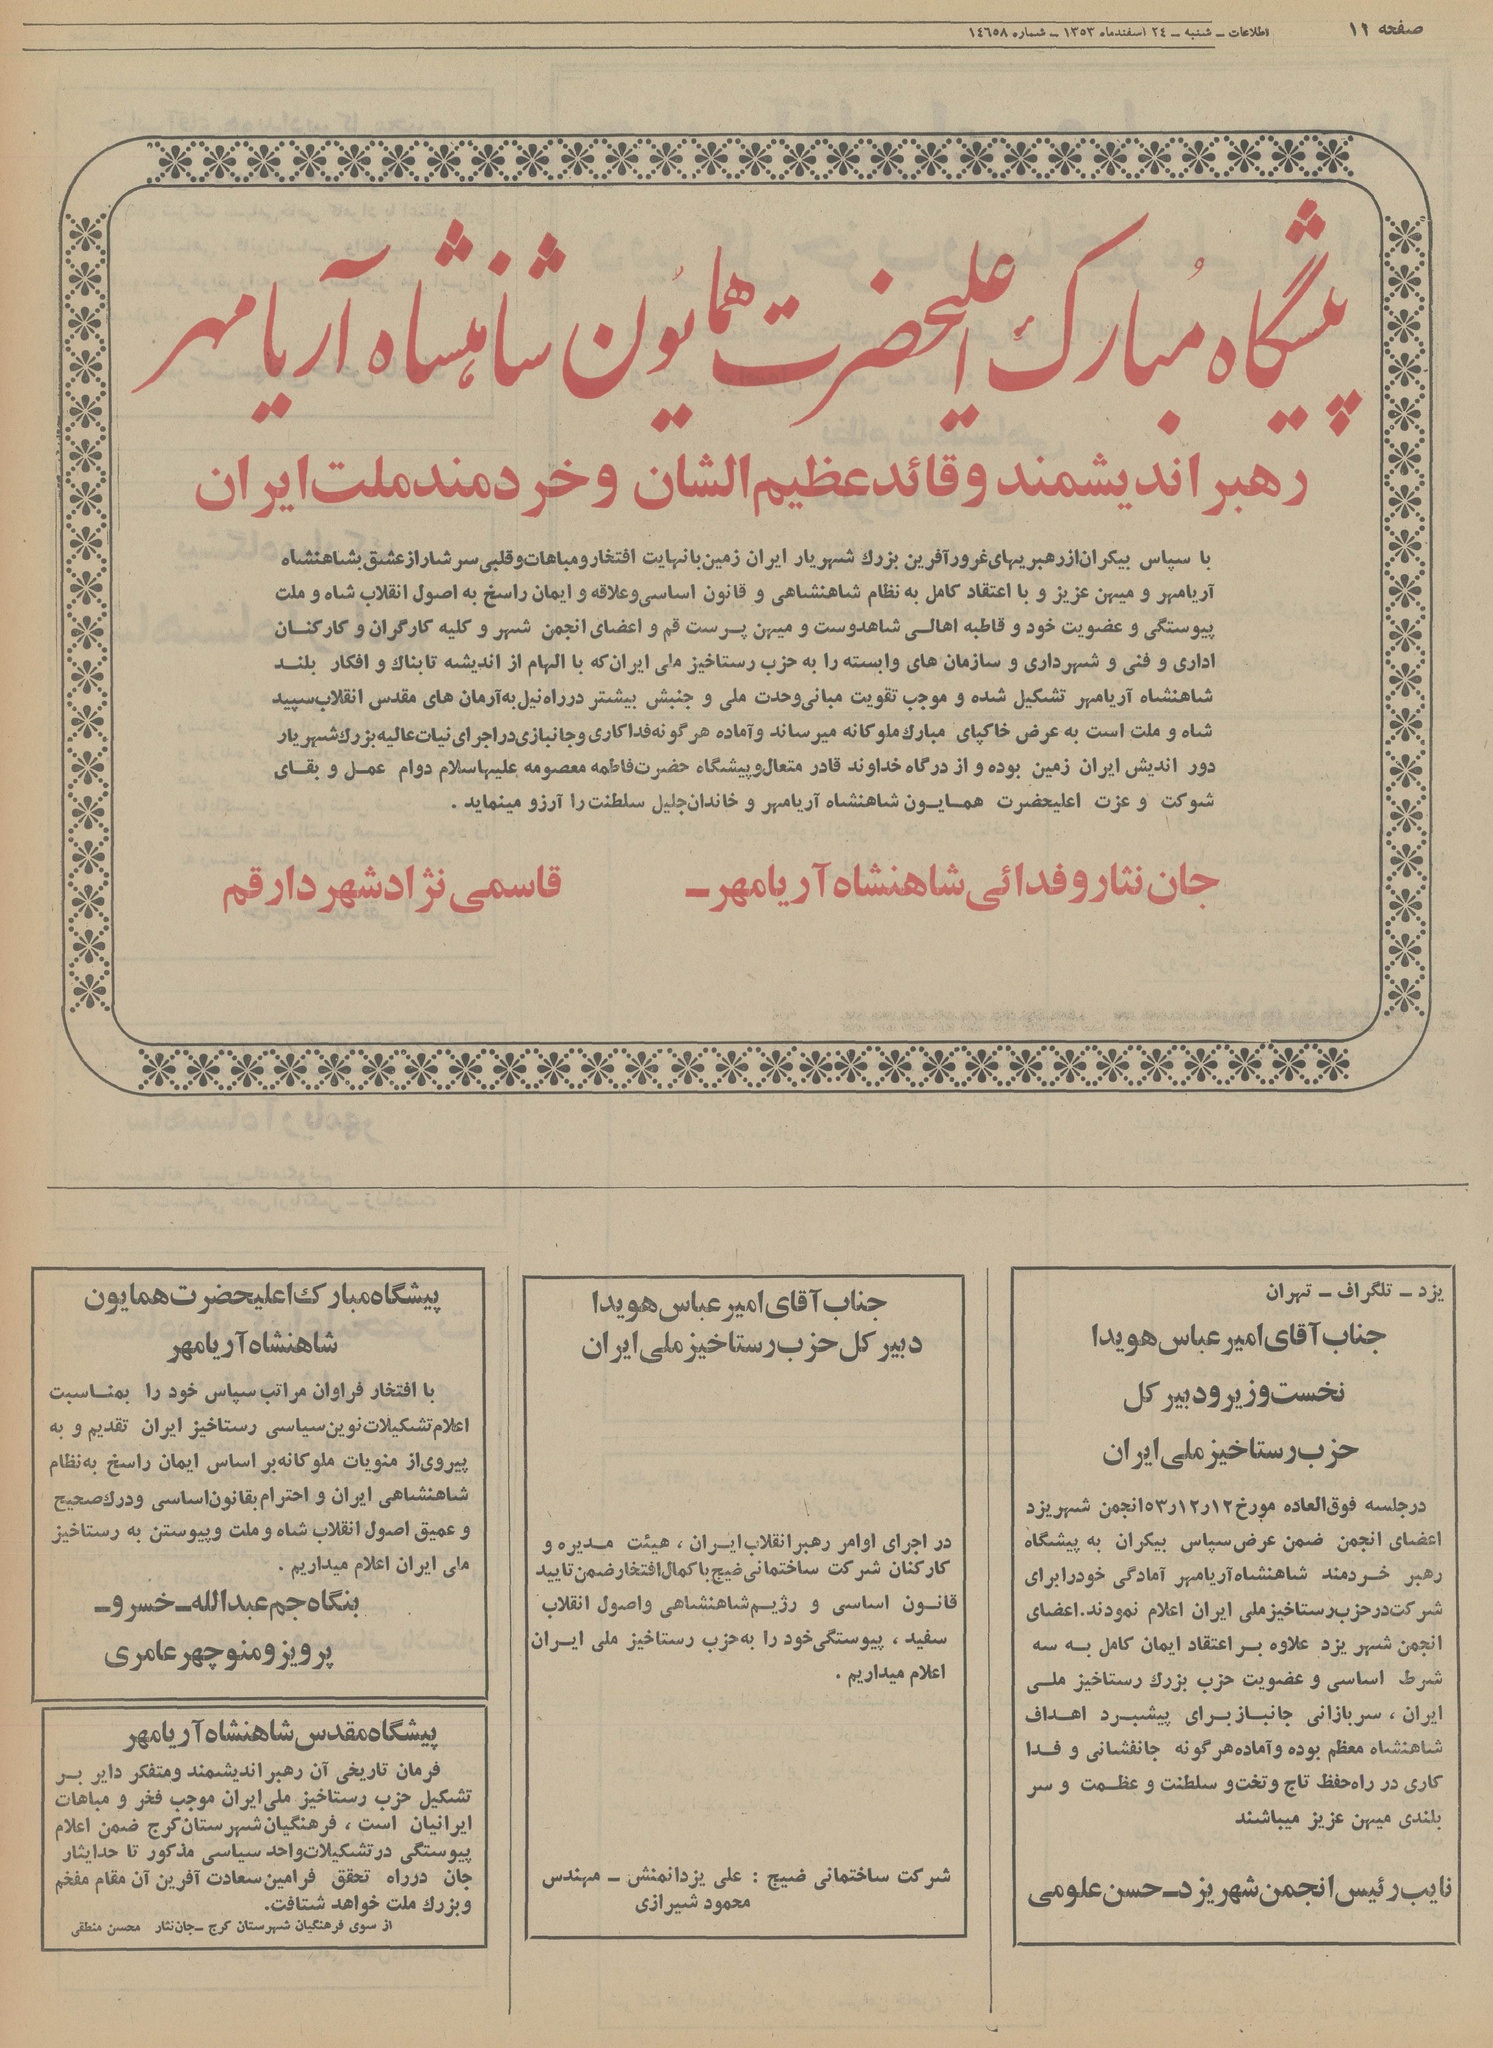 صفحه ۱۱
اطلاعات ـ شنبه ـ ۲۴ اسفندماه ۱۳۵۳ ـ شماره ۱۴۶۵۸
پیشگاه مبارک اعلیحضرت همایون شاهنشاه آریامهر
رهبر اندیشمند و قائد عظیم الشان و خردمند ملت ایران
با سپاس بیکران از رهبریهای غرورآفرین بزرگ شهریار ایران زمین با نهایت افتخار و مباهات و قلبی سرشار از عشق بشاهنشاه
آریامهر و میهن عزیز و با اعتقاد کامل به نظام شاهنشاهی و قانون اساسی و علاقه و ایمان راسخ به اصول انقلاب شاه و ملت
پیوستگی و عضویت خود و قاطبه اهالی شاهدوست و میهن پرست قم و اعضای انجمن شهر و کلیه کارگران و کارکنان
اداری و فنی و شهرداری و سازمان های وابسته را به حزب رستاخیز ملی ایران که با الهام از اندیشه تابناک و افکار بلند
شاهنشاه آریامهر تشکیل شده و موجب تقویت مبانی وحدت ملی و جنبش بیشتر در راه نیل به آرمان های مقدس انقلاب سپید
شاه و ملت است به عرض خاکپای مبارک ملوکانه میرساند و آماده هرگونه فداکاری و جانبازی در اجرای نیات عالیه بزرگ شهریار
دور اندیش ایران زمین بوده و از درگاه خداوند قادر متعال و پیشگاه حضرت فاطمه معصومه علیهاسلام دوام عمل و بقای
شوکت و عزت اعلیحضرت همایون شاهنشاه آریامهر و خاندان جلیل سلطنت را آرزو مینماید .
جان نثار و فدائی شاهنشاه آریامهر ـ قاسمی نژاد شهردار قم
یزد ـ تلگراف ـ تهران
جناب آقای امیر عباس هویدا
نخست وزیر و دبیر کل
حزب رستاخیز ملی ایران
در جلسه فوق العاده مورخ ۱۲ر۱۲ر۵۳ انجمن شهر یزد
اعضای انجمن ضمن عرض سپاس بیکران به پیشگاه
رهبر خردمند شاهنشاه آریامهر آمادگی خود را برای
شرکت در حزب رستاخیز ملی ایران اعلام نمودند. اعضای
انجمن شهر یزد علاوه بر اعتقاد ایمان کامل به سه
شرط اساسی و عضویت حزب بزرگ رستاخیز ملی
ایران ، سربازانی جانباز برای پیشبرد اهداف
شاهنشاه معظم بوده و آماده هرگونه جانفشانی و فدا
کاری در راه حفظ تاج و تخت و سلطنت و عظمت و سر
بلندی میهن عزیز میباشند
نایب رئیس انجمن شهر یزد ـ حسن علومی
جناب آقای امیر عباس هویدا
دبیر کل حزب رستاخیز ملی ایران
در اجرای اوامر رهبر انقلاب ایران ، هیئت مدیره و
کارکنان شرکت ساختمانی ضیج با کمال افتخار ضمن تایید
قانون اساسی و رژیم شاهنشاهی و اصول انقلاب
سفید ، پیوستگی خود را به حزب رستاخیز ملی ایران
اعلام میداریم .
شرکت ساختمانی ضیج : علی یزدانمنش ـ مهندس
محمود شیرازی
پیشگاه مبارک اعلیحضرت همایون
شاهنشاه آریامهر
با افتخار فراوان مراتب سپاس خود را بمناسبت
اعلام تشکیلات نوین سیاسی رستاخیز ایران تقدیم و به
پیروی از منویات ملوکانه بر اساس ایمان راسخ به نظام
شاهنشاهی ایران و احترام بقانون اساسی و درک صحیح
و عمیق اصول انقلاب شاه و ملت و پیوستن به رستاخیز
ملی ایران اعلام میداریم .
بنگاه جم عبدالله ـ خسرو ـ
پرویز و منوچهر عامری
پیشگاه مقدس شاهنشاه آریامهر
فرمان تاریخی آن رهبر اندیشمند و متفکر دایر بر
تشکیل حزب رستاخیز ملی ایران موجب فخر و مباهات
ایرانیان است ، فرهنگیان شهرستان کرج ضمن اعلام
پیوستگی در تشکیلات واحد سیاسی مذکور تا حد ایثار
جان در راه تحقق فرامین سعادت آفرین آن مقام مفخم
و بزرگ ملت خواهد شتافت.
از سوی فرهنگیان شهرستان کرج ـ جان نثار محسن منطقی